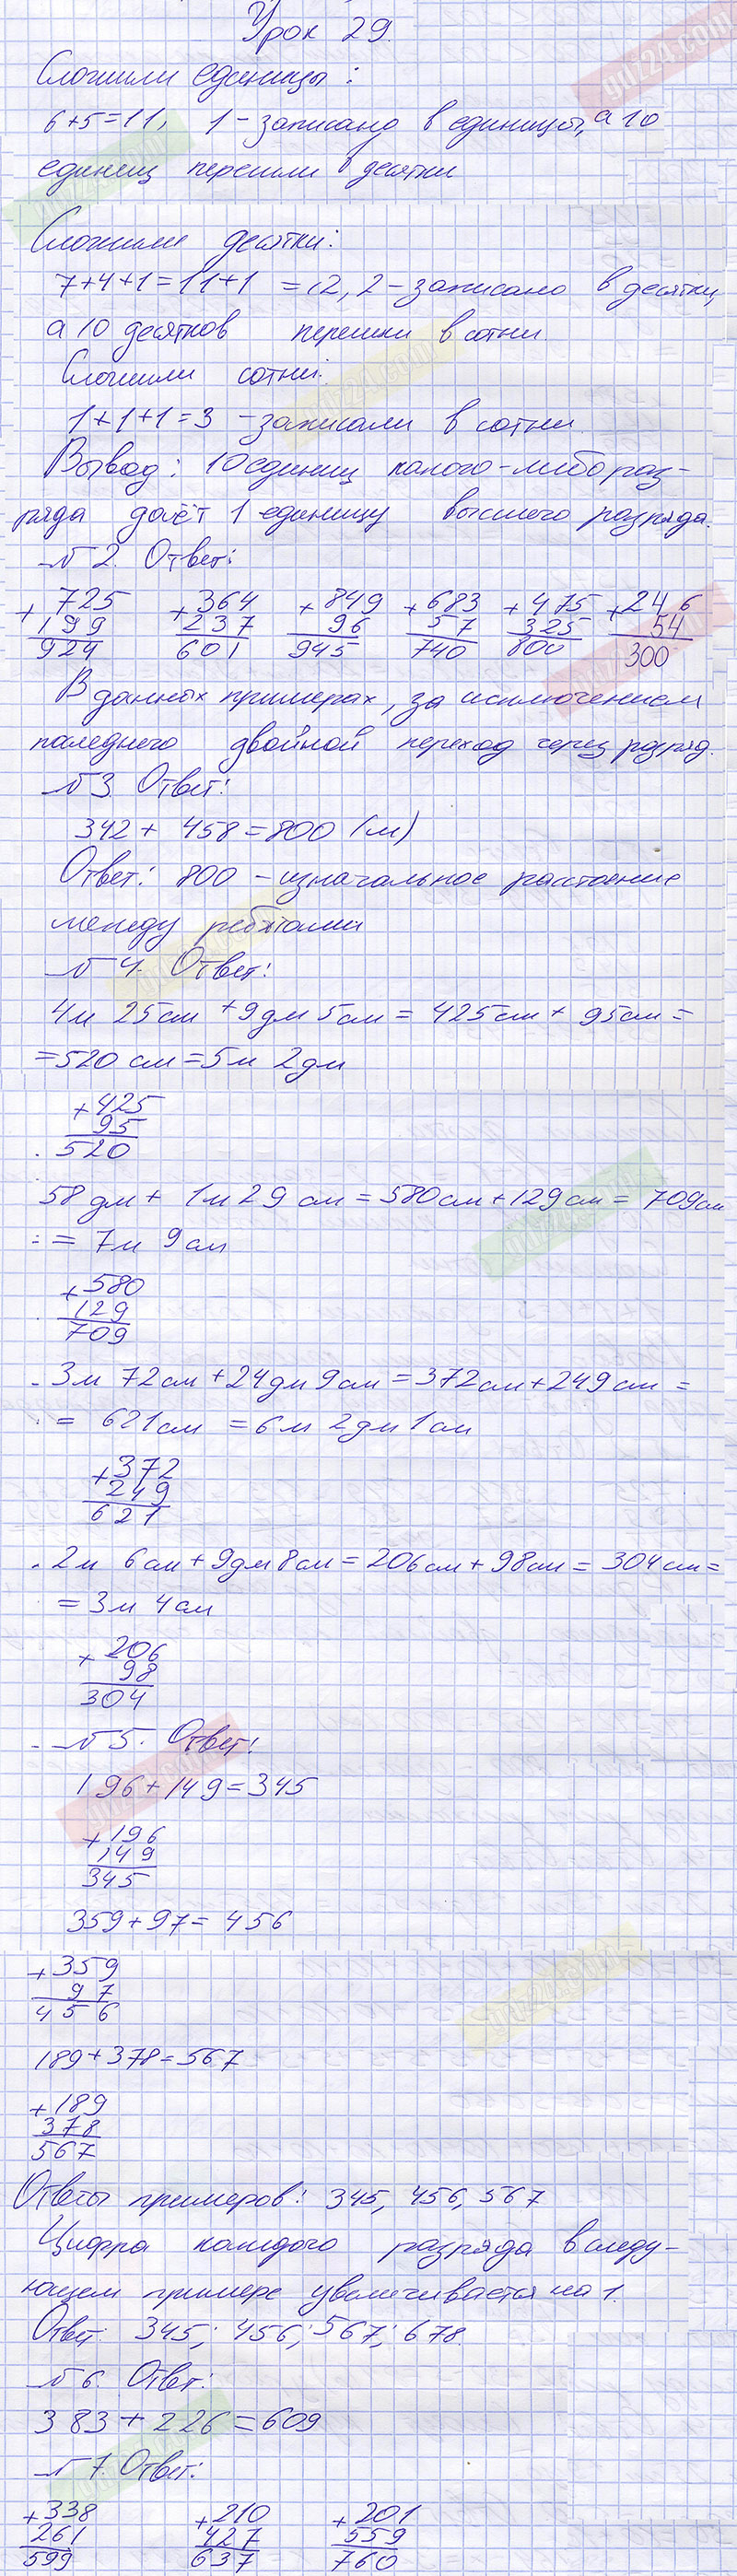 Урок 29.
Сложили единицы:
6+5=11, 1-записано в единицы, а 10
единиц перешли в десятки
Сложили десятки:
7+4+1=11+1 =12, 2-записано в десятки,
а 10 десятков перешли в сотни.
Сложили сотни:
1+1+1=3 -записали в сотни.
Вывод: 10 единиц какого-либо раз-
ряда даёт 1 единицу высшего разряда.
№ 2. Ответ:
+725 +364 +849 +683 +475 +246
199 237 96 57 325 54
924 601 945 740 800 300
В данных примерах, за исключением
последнего двойной переход через разряд.
№ 3. Ответ:
342 + 458 = 800 (м)
Ответ: 800 - изначальное расстояние
между ребятами
№ 4. Ответ:
4м 25см + 9дм 5см = 425см + 95см =
= 520 см = 5м 2дм
+425
95
520
58дм + 1м 29 см = 580см + 129см = 709см
= 7м 9см
+580
129
709
3м 72см + 24дм 9см = 372см + 249см =
= 621см = 6м 2дм 1см
+372
249
621
2м 6см + 9дм 8см = 206см + 98см = 304см =
= 3м 4см
+206
98
304
№ 5. Ответ:
196 + 149 = 345
+196
149
345
359 + 97 = 456
+359
97
456
189 + 378 = 567
+189
378
567
Ответы примеров: 345, 456, 567
Цифра каждого разряда в следу-
ющем примере увеличивается на 1.
Ответ: 345; 456; 567; 678.
№ 6. Ответ:
383 + 226 = 609
№ 7. Ответ:
+338 +210 +201
261 427 559
599 637 760